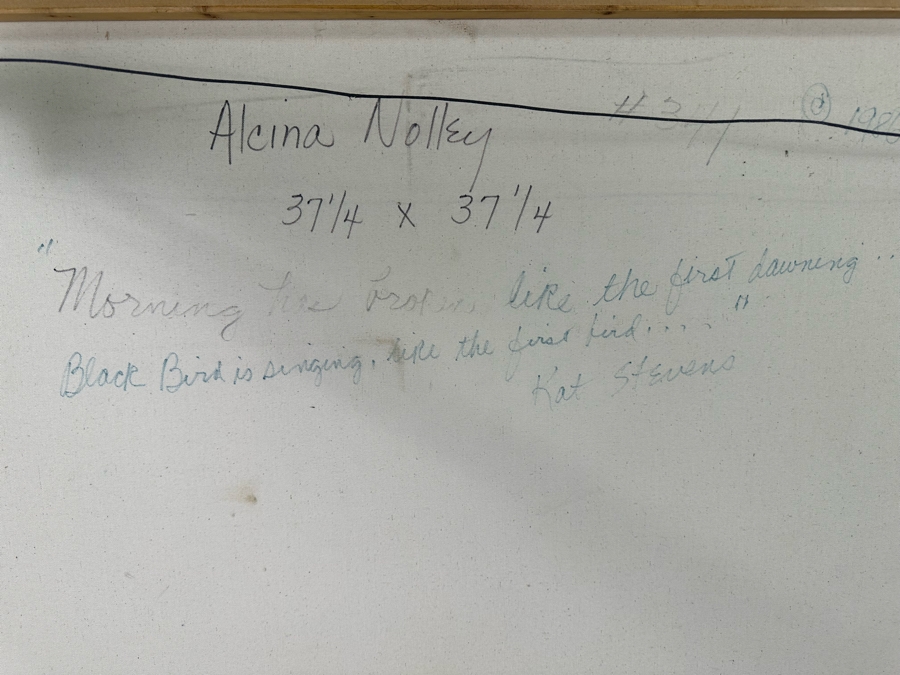 Alcina Nolley
© 198
37 1/4 x 37 1/4
"Morning has broken like the first dawning ..
Black Bird is singing, like the first bird.... "
Kat Stevens